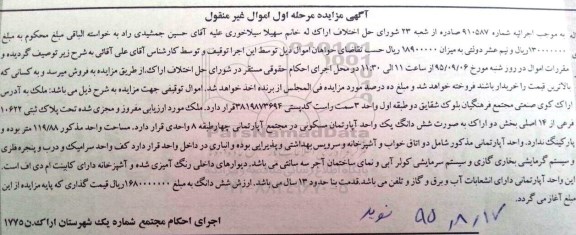 آگهی مزایده مرحله اول اموال غیر منقول
به موجب اجرائیه شماره ۹۱۰۵۸۷ صادره از شعبه ۲۳ شورای حل اختلاف اراک له خانم سهیلا سیلاخوری علیه آقای حسین جمشیدی راد به خواسته الباقی مبلغ محکوم به مبلغ
۱۳۰۰۰۰۰۰۰ و نیم عشر دولتی به میزان ۱۸۹۰۰۰۰۰ ریال حسب تقاضای خواهان اموال ذیل توسط این اجرا توقیف و توسط کارشناس آقای علی آقائی به شرح زیر توصیف گردیده و
مقررات اموال در روز شنبه مورخ ۹۵/۰۹/۰۶ از ساعت ۱۱ الی ۱۱.۳۰ در محل اجرای احکام حقوقی مستقر در شورای حل اختلاف اراک.از طریق مزایده به فروش میرسد و به کسانی که
بالاترین قیمت را خریدار باشند فروخته خواهد شد و مبلغ ده درصد مورد مزایده فی المجلس از برنده اخذ خواهد شد. اموال توقیفی جهت مزایده به شرح ذیل می باشد: ملک به آدرس
اراک کوی صنعتی مجتمع فرهنگیان بلوک شقایق دو طبقه اول واحد ۳ سمت راست کدپستی ۳۸۱۹۸۷۳۶۹۶ قرار دارد. ملک مورد ارزیابی مفروز و مجزی شده تحت پلاک ثبتی ۱۰۶۲۲
فرعی از ۱۴ اصلی بخش دو اراک به صورت شش دانگ یک واحد آپارتمان مسکونی در مجتمع آپارتمانی چهار طبقه ۸ واحدی قرار دارد. مساحت واحد مذکور ۱۱۹/۸۸ متر بوده و
پارکینگ ندارد. واحد آپارتمانی مذکور شامل دو اتاق خواب و آشپزخانه و سرویس بهداشتی و پذیرایی بوده و انباری در داخل واحد قرار دارد کف واحد سرامیک و درب و پنجره فلزی و
سیستم گرمایشی بخاری گازی و سیستم سرمایشی کولر آبی و نمای ساختمان آجر سه سانتی می باشد. دیوارهای داخلی رنگ آمیزی شده و آشپزخانه دارای کابینت ام دی اف است.
این واحد آپارتمانی دارای انشعابات آب و برق و گاز و تلفن می باشد.قدمت بنا حدود ۱۳ سال می باشد. ارزش شش دانگ به مبلغ ۱۶۸۰۰۰۰۰۰۰ ریال قیمت گذاری که پایه مزایده از این
مبلغ آغاز می گردد.
اجرای احکام مجتمع شماره یک شهرستان اراک.ن ۱۷۷۵
نوید ۹۵/۸/۱۷